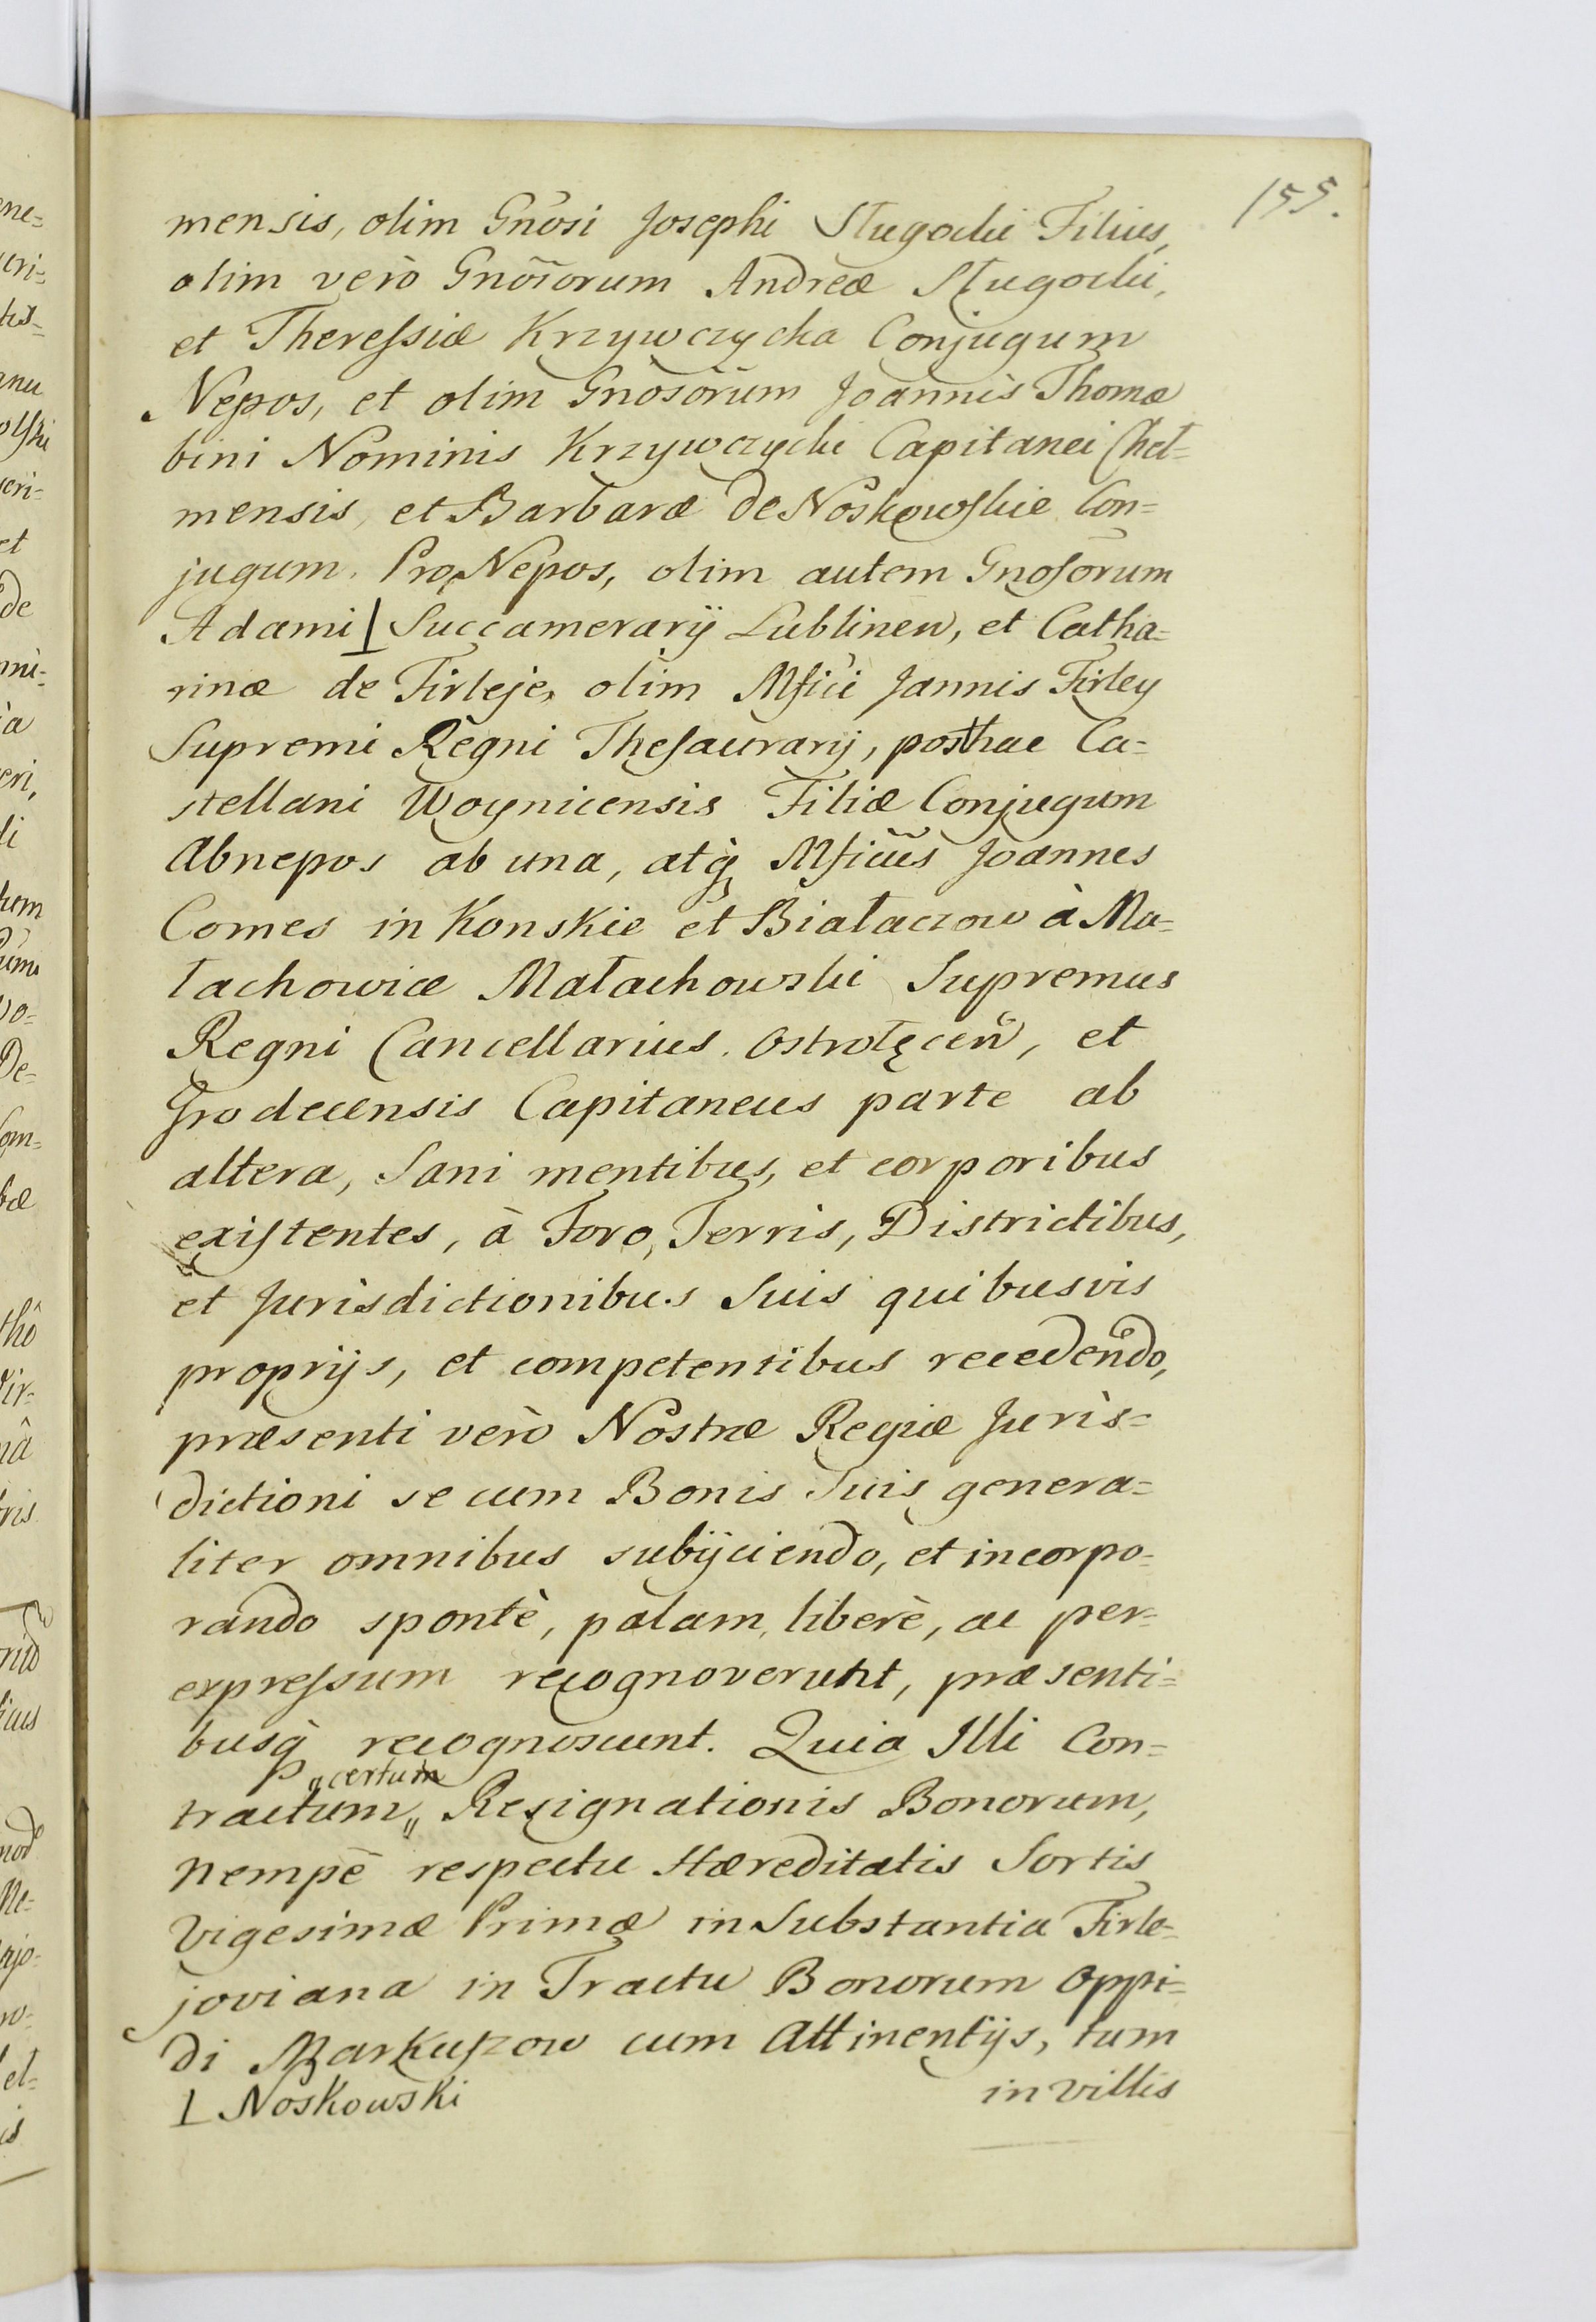 155.
mensis, olim Gnosi Josephi Sługocki Filius,
olim verò Gnosorum Andreæ Sługocki,
et Theressiæ Krzywczycka Conjugum
Nepos, et olim Gnosorum Joannis Thomæ
bini Nominis Krzywczycki Capitanei Cheł=
mensis, et Barbaræ de Noskowskie Con=
jugum. ProNepos, olim autem Gnosorum
Adami ⊥ Succamerarij Lublinen, et Catha=
rinæ de Firleje, olim Mfici Jannis Firley
Supremi Regni Thesaurarij, posthac Ca=
stellani Woynicensis Filiæ Conjugum
Abnepos ab una, atq Mficus Joannes
Comes in Konskie et Białaczow à Ma=
łachowice Małachowski Supremus
Regni Cancellarius. Ostrołęcen, et
Grodecensis Capitaneus parte ab
altera, Sani mentibus, et corporibus
existentes, à Foro, Terris, Districtibus,
et Jurisdictionibus Suis quibusvis
proprijs, et competentibus recedendo,
præsenti verò Nostræ Regiæ Juris=
dictioni se cum Bonis Suis genera=
liter omnibus subijciendo, et incorpo=
rando spontè, palam, liberè, ac per=
expressum recognoverunt, præsenti=
busq recognoscunt. Quia Illi Con=
„certum
tractum„ Resignationis Bonorum,
nempè respectu Hæreditatis Sortis
Vigesimæ Primæ in Substantia Firle=
joviana in Tractu Bonorum Oppi=
di Markuszow cum Attinentijs, tum
⊥ Noskowski
in Villis